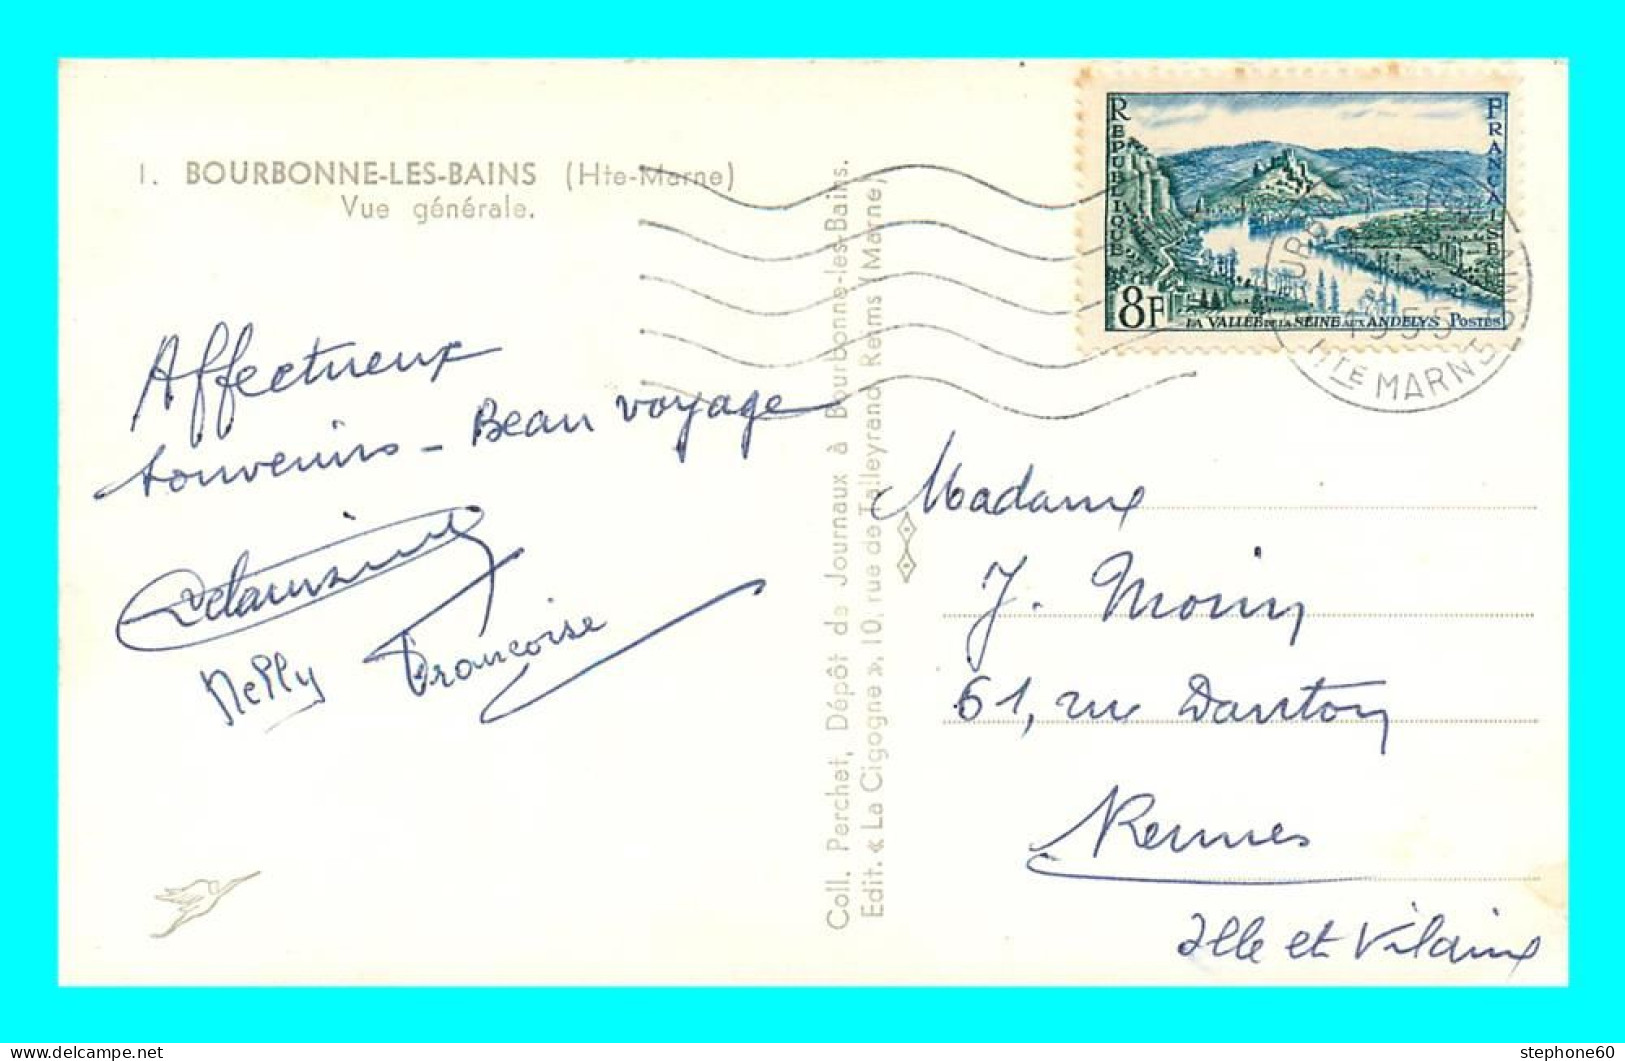 1. BOURBONNE-LES-BAINS (Hte-Marne)
Vue générale.
Affectueux
souvenirs - Beau voyage
Nelly Françoise
Coll. Perchet, Dépôt de Journaux à Bourbonne-les-Bains.
Edit. « La Cigogne », 10, rue de Talleyrand Reims (Marne)
REPUBLIQUE
FRANCAISE
8F
LA VALLEE DE LA SEINE AUX ANDELYS POSTES
1955
Hte MARNE
Madame
J. Morin
61, rue Danton
Rennes
Ille et Vilaine
stephone60
delcampe.net